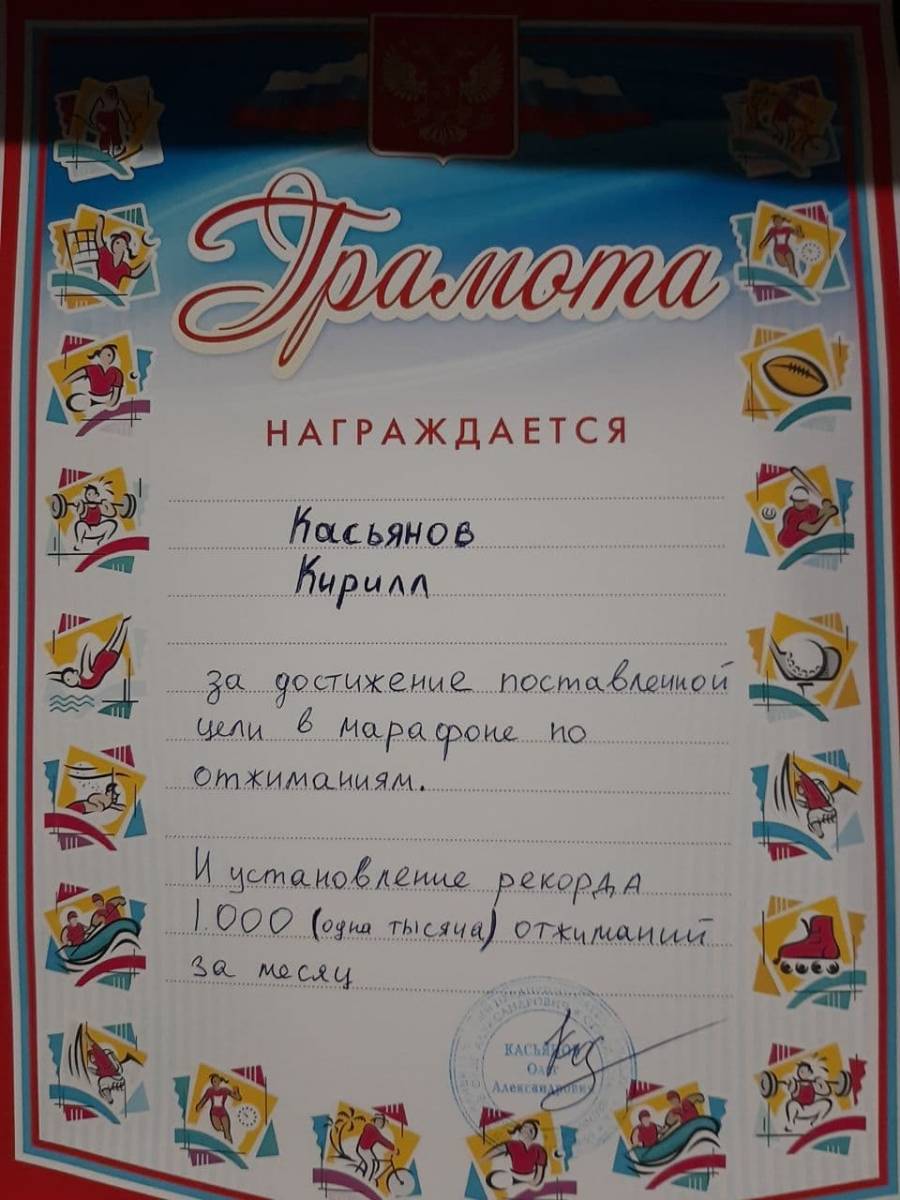 Грамота
НАГРАЖДАЕТСЯ
Касьянов
Кирилл
за достижение поставленной
цели в марафоне по
отжиманиям.
И установление рекорда
1.000 (одна тысяча) отжиманий
за месяц
КАСЬЯНОВ
Олег
Александрович